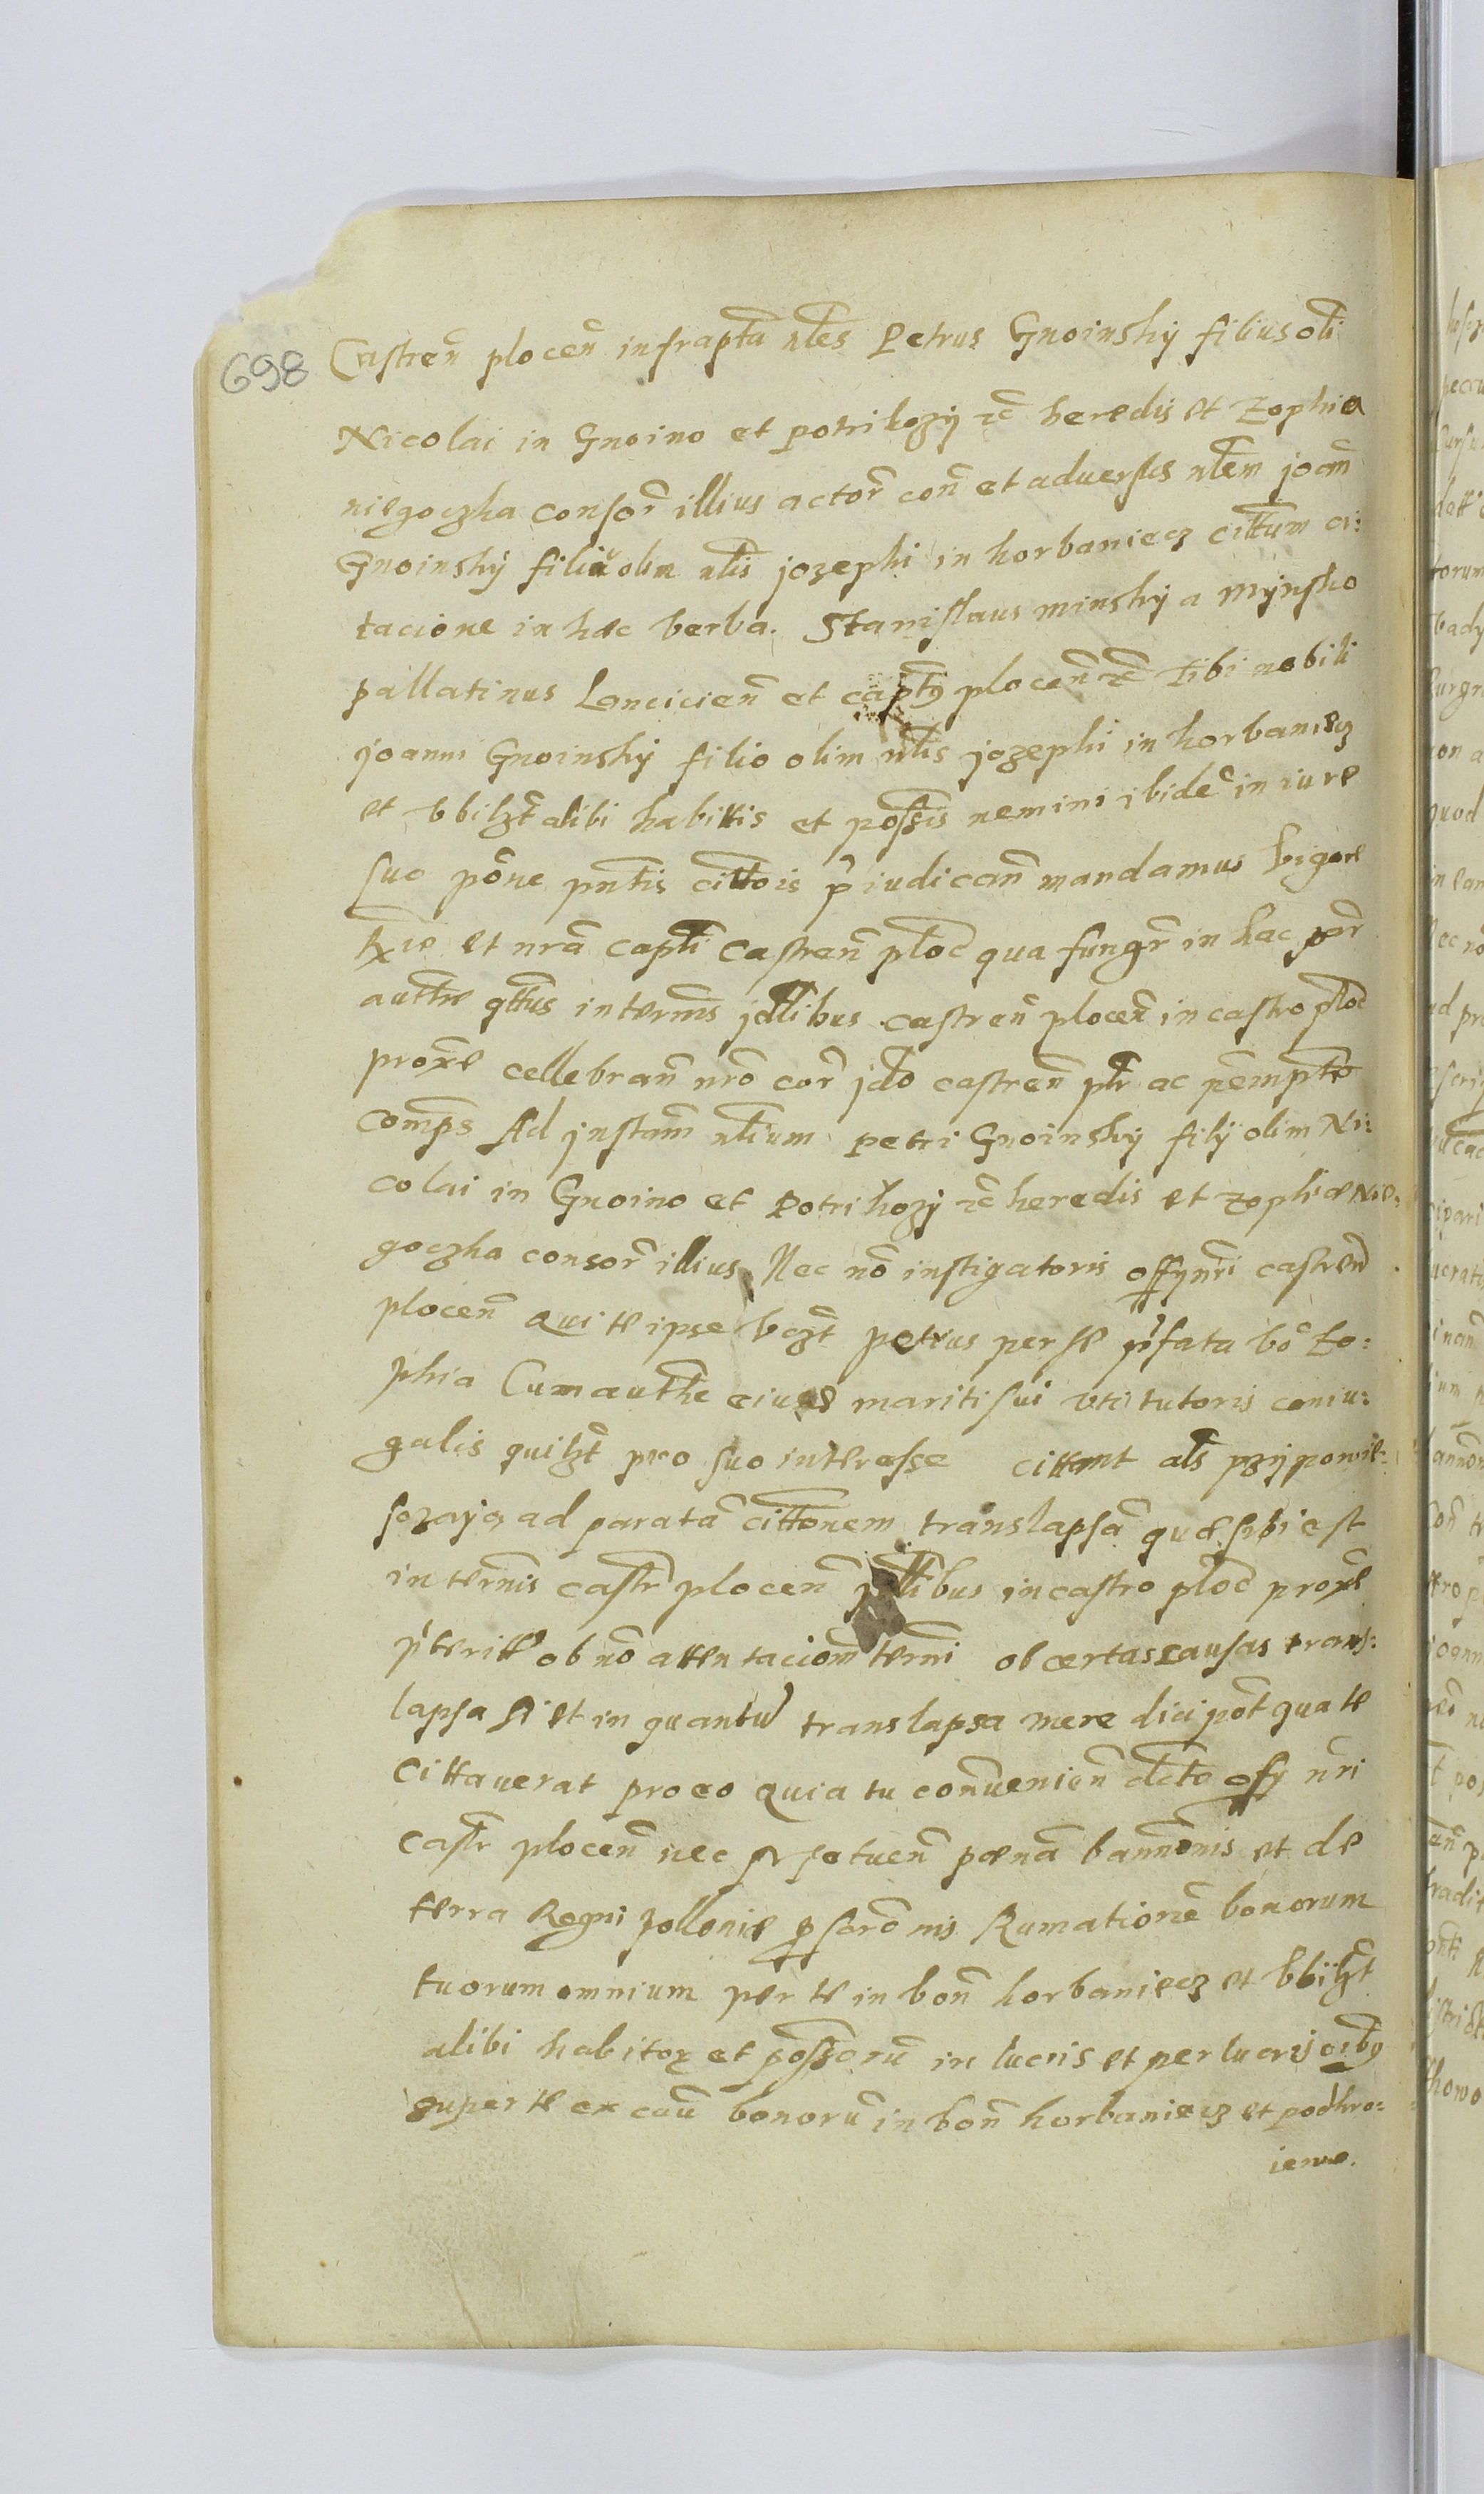 698
Castren̄ plocen̄ infrapta nles Petrus Gnoinsky filius oli
Nicolai in Gnoino et potrikozy zc heredis et Zophia
niegoczka consor̄ illius actor̄ con̄ et aduersus nlem joan̄
Gnoinsky filiu olim nlis jozephi in horbaniecz cittum ci:
tacione in hæc verba. Stanislaus minsky a Mynsko
pallatinus Lancicien̄ et captꝰ plocen̄ zc Tibi nobili
joanni Gnoinsky filio olim nlis jozephi in horbaniecz
et vbilzt alibi habittis et possis nemini ibidē in iure
suo pōne pntis cittois p̄iudican̄ mandamus vigore
et nrā capli castren̄ ploc̄ qua fungr̄ in hac par̄
auttte qttus in termis jdlibus castren̄ plocen̄ in castro ploc̄
proxe cellebran̄ nrō cor̄ jdō castren̄ plr ac pempte
comps Ad jnstam̄ nlium petri Gnoinsky filij olim Ni:
colai in Gnoino et Potrikozy zc heredis et zophiæ Nie:
goczka consor̄ illius Nec nō instigatoris offy nri castren̄
plocen̄ Qui te ipse vczt petrus per se p̄fata vō Zo:
phia Cum autthe eiusd mariti sui vti tutoris coniu:
galis quilzt pro suo interesse cittant als przypowie:
sczaya ad paratā cittonem translapsā quæ sibi est
in termis castr̄ plocen̄ jdlibus in castro ploc̄ proxe
p̄teritt ob nō attentaciom̄ termi ob certas causas trans:
lapsa si et in quantu translapsa mere dici pōt qua te
cittauerat pro eo quia tu conuenien̄ dcto offy nri
castr̄ plocen̄ nec satuen̄ pœnā bannōnis et de
terra Regni pollonie pscrōnis Rumationē bonorum
tuorum omnium per te in bon̄ horbaniecz et vbilzt
alibi habitoꝝ et possorū in lucris et perlucris oibꝰ
super te ex cau bonorū in bon̄ horbaniecz et podkro:
iewo.